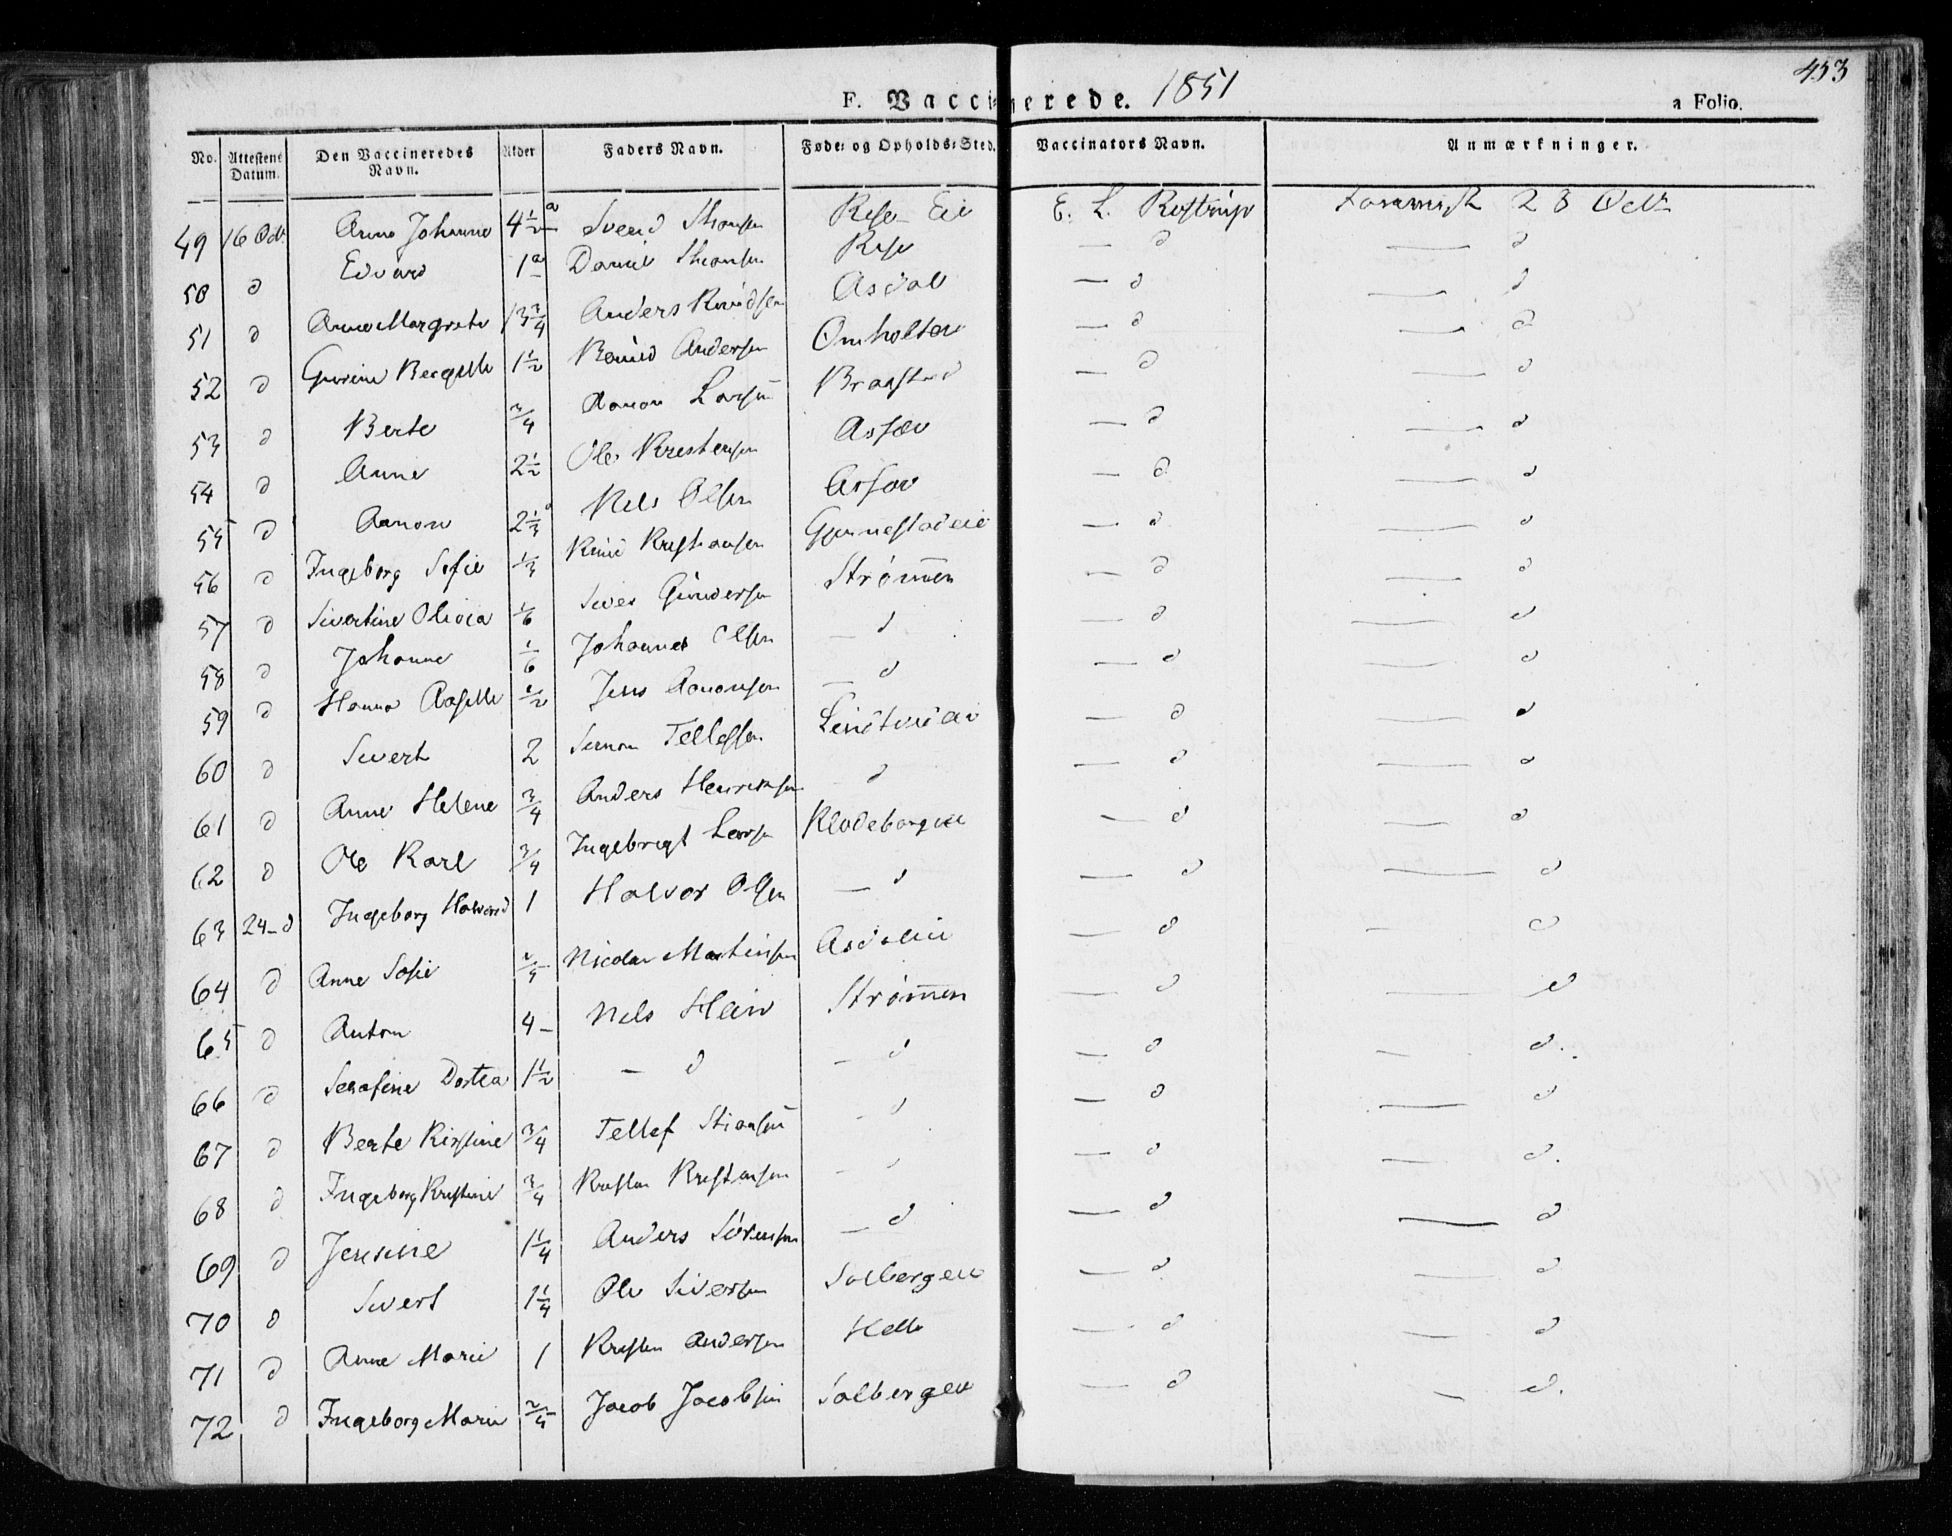 453
F. Vaccinerede. 1851
a Folio.
No. | Attestens Datum. | Den Vaccineredes Navn. | Alder | Faders Navn. | Føde= og Opholds=Sted. | Vaccinators Navn. | Anmærkninger.
49 | 16 Oct. | Anne Johanne | 4 1/2 a | Svend | Rise Eie | E. L. Rostrup | 23 Octr
50 | d | Edvard | 1 a | Daniel | Rise | — d | — d
51 | d | Anne Margrete | 13 3/4 | Anders Knudsen | Asdal | — d | — d
52 | d | Gurine Bergitte | 1 1/2 | Knud Andersen | Omholten | — d | — d
53 | d | Berte | 3/4 | Aanon Larsen | Braastad | — d | — d
54 | d | Anne | 2 1/2 | Ole Kristensen | Assæv | — d | — d
55 | d | Aanon | 2 1/3 | Nels Olsen | Assæv | — d | — d
56 | d | Ingeborg Sofie | 1/3 | Knud Kristiansen | Gjennestadeie | — d | — d
57 | d | Sivertine Olivia | 1/6 | Gundersen | Strømen | — d | — d
58 | d | Johanne | 1/6 | Johannes Olsen | — d | — d | — d
59 | d | Hanna | 1/2 | Jens Aanonsen | — d | — d | — d
60 | d | Sivert | 2 | Simon Tellefsen | | — d | — d
61 | d | Anne Helene | 3/4 | Anders Henriksen | d | — d | — d
62 | d | Ole Karl | 3/4 | Ingebrigt Larsen | Klodeborgeie | — d | — d
63 | 24 – d | Ingeborg | 1 | Halvor Olsen | — d | — d | — d
64 | d | Anne Sofie | | Nicolai Martinsen | Asdaleie | — d | — d
65 | d | Anton | 4 – | Nels Hein | Strømen | — d | — d
66 | d | Serafine Dortea | 1 1/2 | — d | — d | — d | — d.
67 | d | Berte Kirstine | 3/4 | Tellef Stiansen | d | — d | — d
68 | d | Ingeborg Kristine | 3/4 | Kristen Kristansen | — d | — d | — d.
69 | d | Jensine | 1 1/4 | Anders Sørensen | — d | — d | — d
70 | d | Sivert | 1 1/4 | Ole Siversen | Solbergeie | — d | — d
71 | d | Anne Marie | 1 | Kristen Andersen | Helle | — d | — d
72 | d | Ingeborg Marie | | Jacob Jacobsen | Solbergeie | — d | — d.